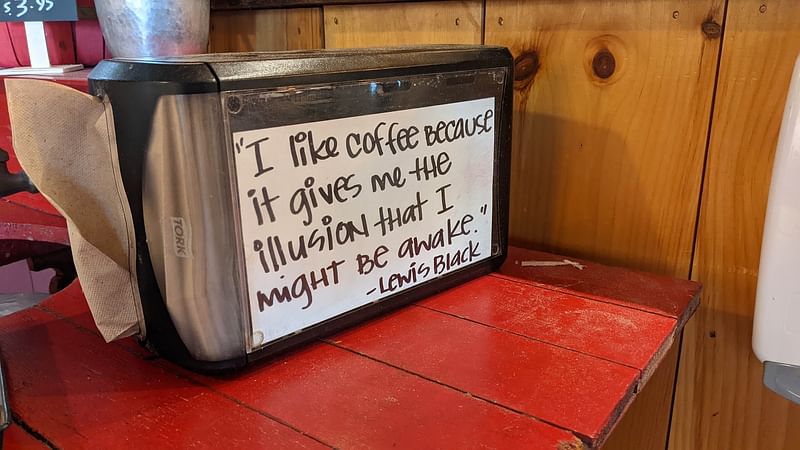 $3.95
TORK
"I like coffee because
it gives me the
illusion that I
might be awake."
-Lewis Black